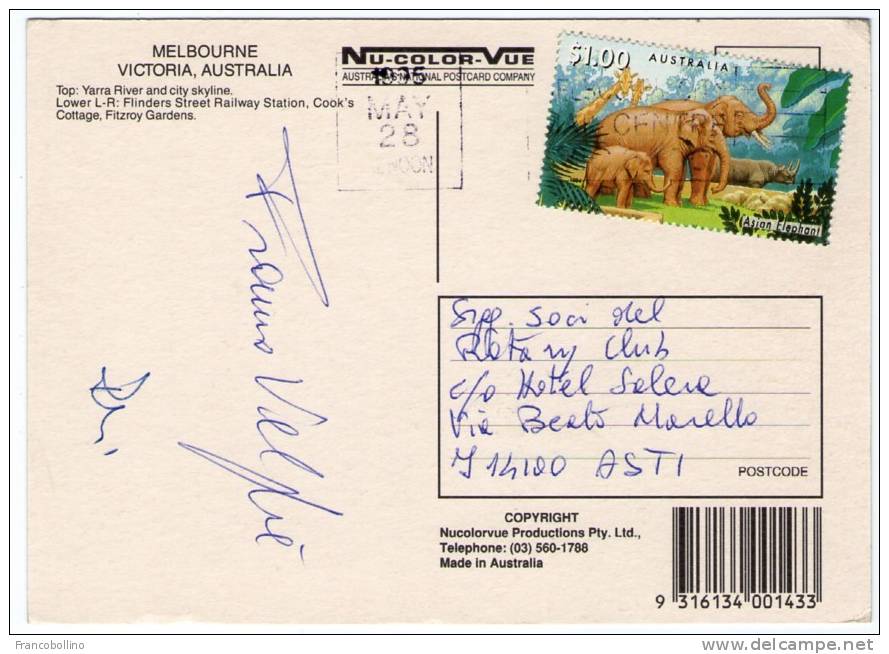 MELBOURNE
VICTORIA, AUSTRALIA
Top: Yarra River and city skyline.
Lower L-R: Flinders Street Railway Station, Cook's
Cottage, Fitzroy Gardens.
NU-COLOR-VUE
AUSTRALIA'S NATIONAL POSTCARD COMPANY
MAY
28
$1.00 AUSTRALIA
CENTRE
Asian Elephant
Sigg. Soci del
Rotary Club
c/o Hotel Salera
Via Beato Marello
I 14100 ASTI
POSTCODE
Franco
COPYRIGHT
Nucolorvue Productions Pty. Ltd.,
Telephone: (03) 560-1788
Made in Australia
9 316134 001433
Francobollino
delcampe.net